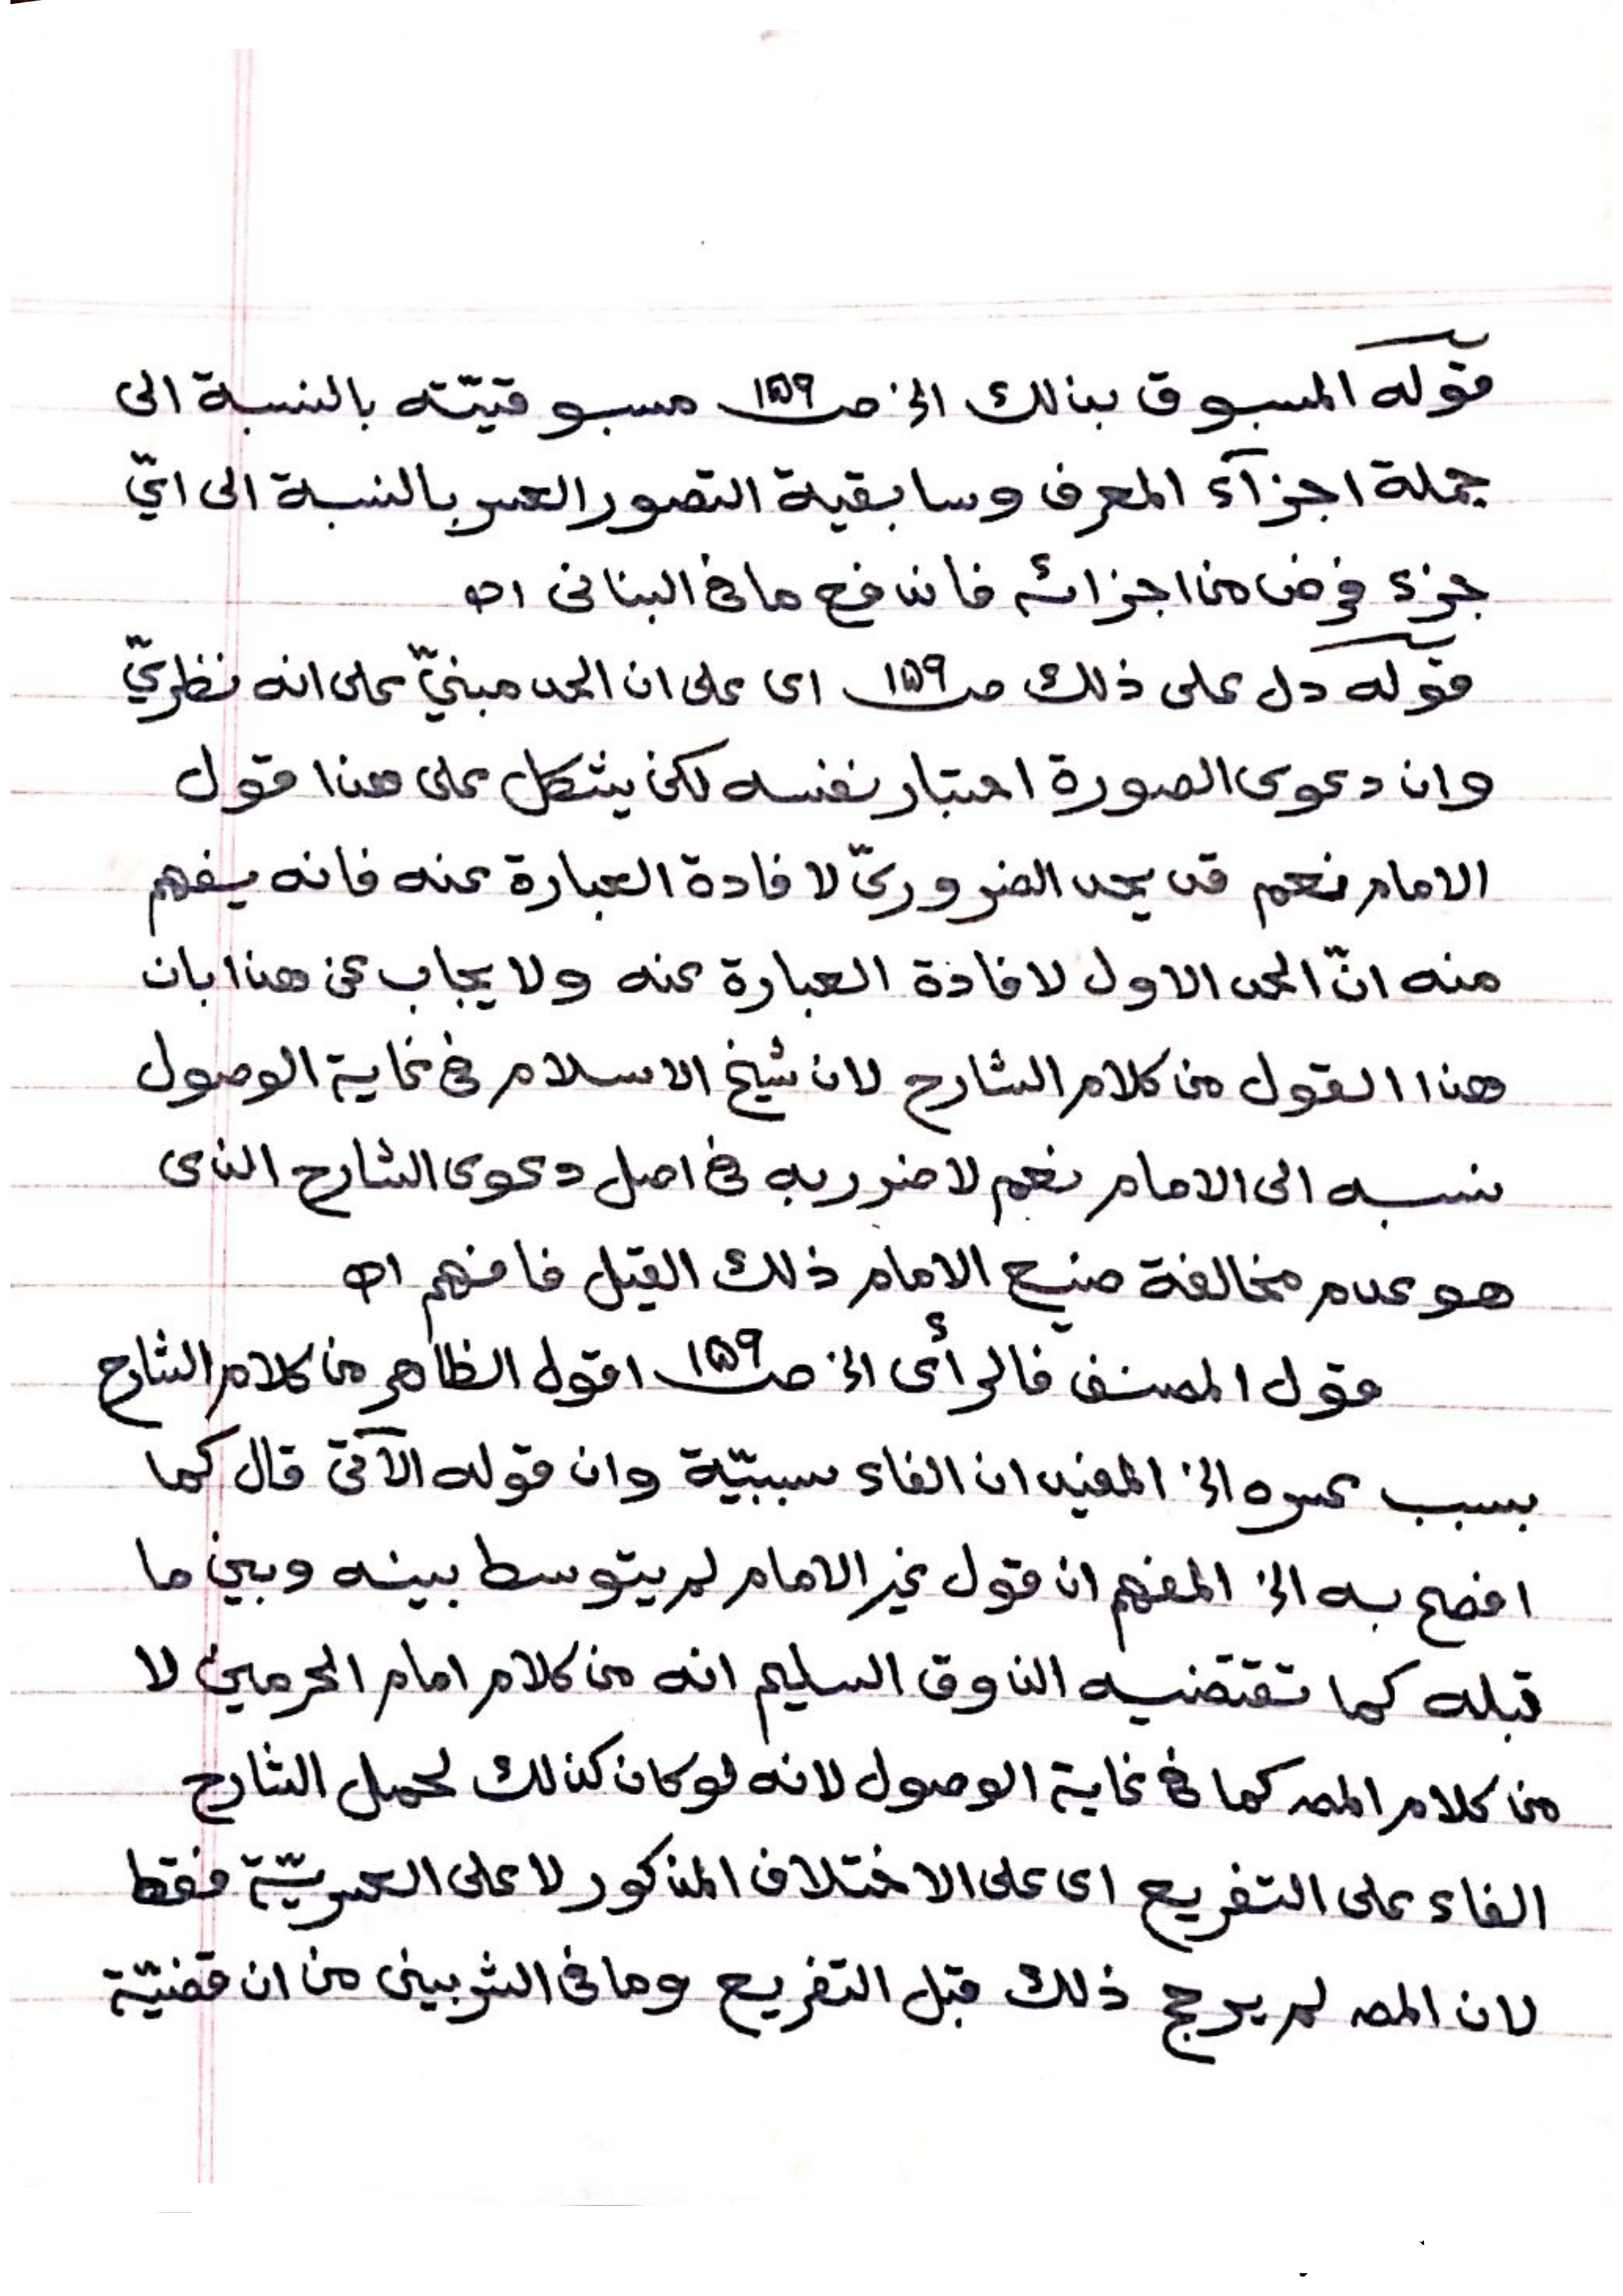 قوله المسبوق بذلك الخ صـ١٥٩ـ مسبوقيّته بالنسبة الى
جملة اجزآء المعرف وسابقية التصور العسر بالنسبة الى ايّ
جزء فرض من اجزائه فاندفع ما فى البنانى اه
قوله دل على ذلك صـ١٥٩ـ اى على ان الحد مبنيّ على انه نظريّ
وان دعوى الصورة اختبار نفسه لكن يشكل على هذا قول
الامام نعم قد يحد الضروريّ لافادة العبارة عنه فانه يفهم
منه انّ الحد الاول لافادة العبارة عنه ولا يجاب عن هذا بان
هذا القول من كلام الشارح لان شيخ الاسلام فى غاية الوصول
نسبه الى الامام نعم لا ضرر به فى اصل دعوى الشارح الذى
هو عدم مخالفة صنيع الامام ذلك القيل فافهم اه
قول المصنف فالرأى الخ صـ١٥٩ـ اقول الظاهر من كلام الشارح
بسبب عسره الخ المفيد ان الفاء سببيّة وان قوله الآتى قال كما
افصح به الخ المفهم ان قول غير الامام لم يتوسط بينه وبين ما
قبله كما تقتضيه الذوق السليم انه من كلام امام الحرمين لا
من كلام المصـ كما فى غاية الوصول لانه لو كان كذلك لحمل الشارح
الفاء على التفريع اى على الاختلاف المذكور لا على العسريّة فقط
لان المصـ لم يرجح ذلك قبل التفريع وما فى الشربينى من ان قضيّة